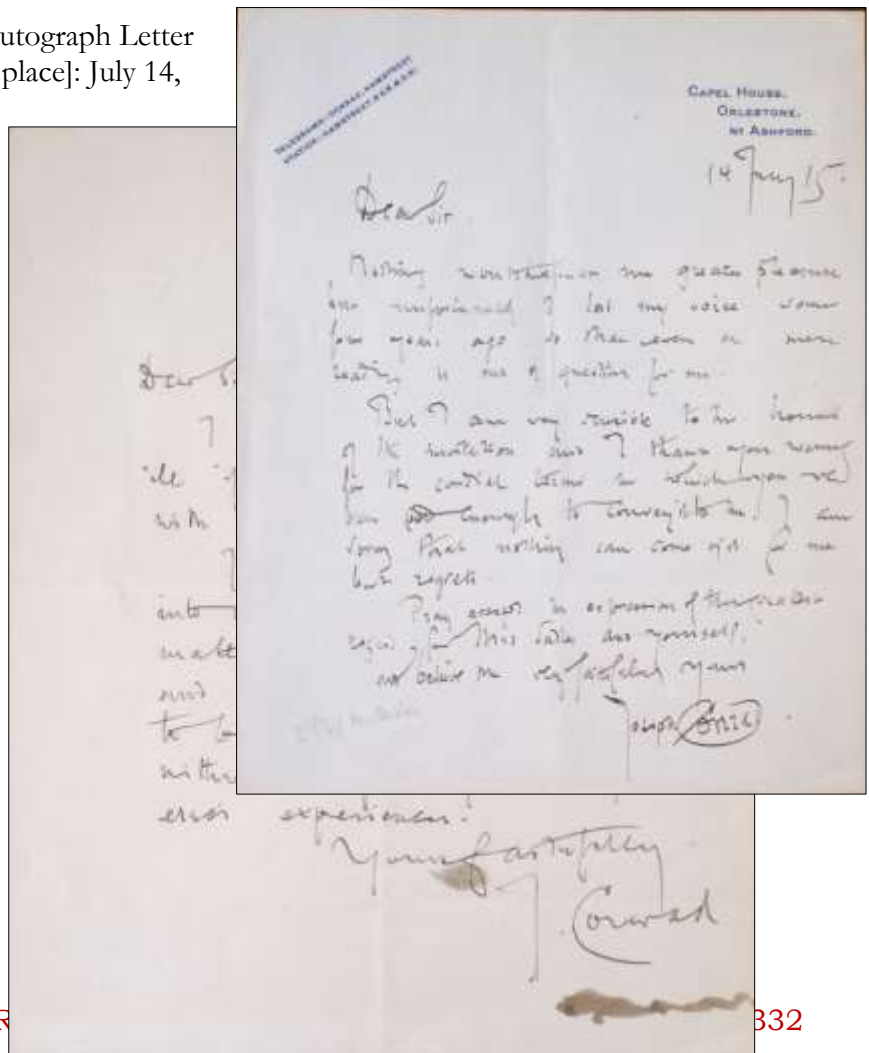 utograph Letter
place]: July 14,
TELEGRAMS:-CONRAD, HAMSTREET
STATION:-HAMSTREET, S.E.& C.R.
CAPEL HOUSE,
ORLESTONE,
NR ASHFORD.
14 July 15.
Dear Sir.
Nothing would give me greater pleasure
but unfortunately I lost my voice some
four years ago so that even a mere
reading is out of question for me.
But I am very sensible to the honour
of the invitation and I thank you warmly
for the cordial terms in which you've
been good enough to convey it to me. I am
sorry that nothing can come of it for me
but regrets.
Pray accept the expression of
regard for this and yourself.
and believe me very faithfully yours
Joseph Conrad
Dear
I
with
into
matt
and
to
error experiences!
Yours faithfully
J. Conrad
R
332